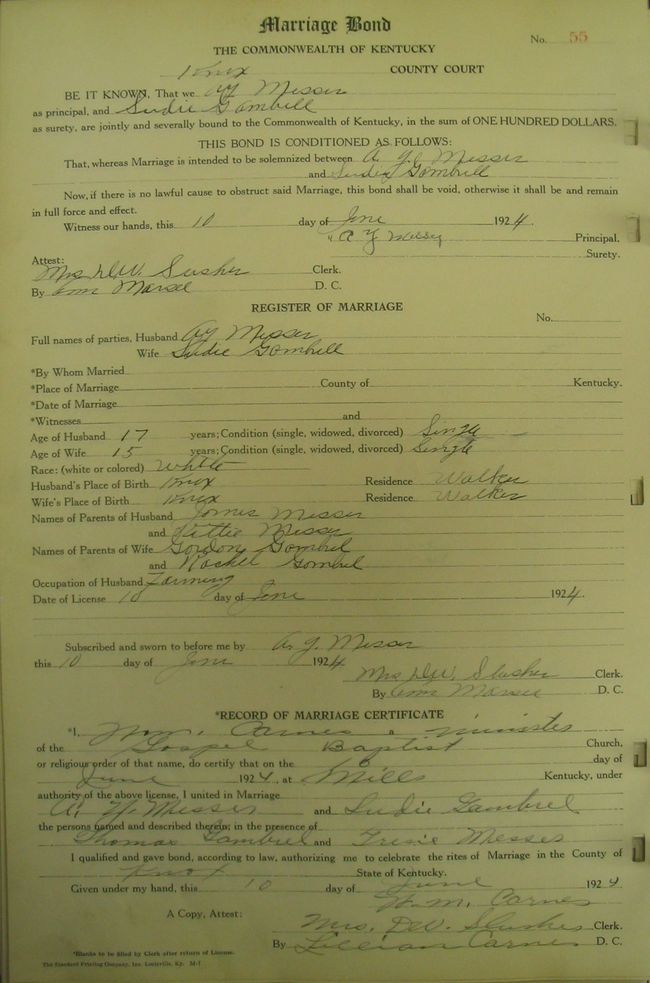 Marriage Bond
No. 55
THE COMMONWEALTH OF KENTUCKY
Knox COUNTY COURT
BE IT KNOWN, That we AY Messer
as principal, and Sudie Gambill
as surety, are jointly and severally bound to the Commonwealth of Kentucky, in the sum of ONE HUNDRED DOLLARS.
THIS BOND IS CONDITIONED AS FOLLOWS:
That, whereas Marriage is intended to be solemnized between A. Y. Messer
and Sudie Gombill
Now, if there is no lawful cause to obstruct said Marriage, this bond shall be void, otherwise it shall be and remain
in full force and effect.
Witness our hands, this 10 day of June 1924
A Y Principal.
Surety.
Attest:
Mrs D.W. Slusher Clerk.
By D. C.
REGISTER OF MARRIAGE
No.
Full names of parties, Husband AY Messer
Wife Sudie Gombill
*By Whom Married
*Place of Marriage County of Kentucky.
*Date of Marriage
*Witnesses and
Age of Husband 17 years; Condition (single, widowed, divorced) Single
Age of Wife 15 years; Condition (single, widowed, divorced) Single
Race: (white or colored) White
Husband's Place of Birth Knox Residence Walker
Wife's Place of Birth Knox Residence Walker
Names of Parents of Husband Messer
and Kittie Messer
Names of Parents of Wife Gordon Gombil
and Rachel Gombil
Occupation of Husband Farming
Date of License 10 day of June 1924.
Subscribed and sworn to before me by A. Y. Messer
this 10 day of June 1924
Mrs D.W. Slusher Clerk.
By D. C.
*RECORD OF MARRIAGE CERTIFICATE
*I, Wm. Carnes a minister
of the Gospel Baptist Church,
or religious order of that name, do certify that on the day of
June 1924, at Mills Kentucky, under
authority of the above license, I united in Marriage
A. Messer and Sudie Gambrel
the persons named and described therein; in the presence of
Thomas Gambrel and Messer
I qualified and gave bond, according to law, authorizing me to celebrate the rites of Marriage in the County of
Knox State of Kentucky.
Given under my hand, this 10 day of June 1924
W. M. Carnes
A Copy, Attest:
Mrs. D.W. Slusher Clerk.
By Lillian Carnes D. C.
*Blanks to be filled by Clerk after return of License.
The Standard Printing Company, Inc. Louisville, Ky. M-7